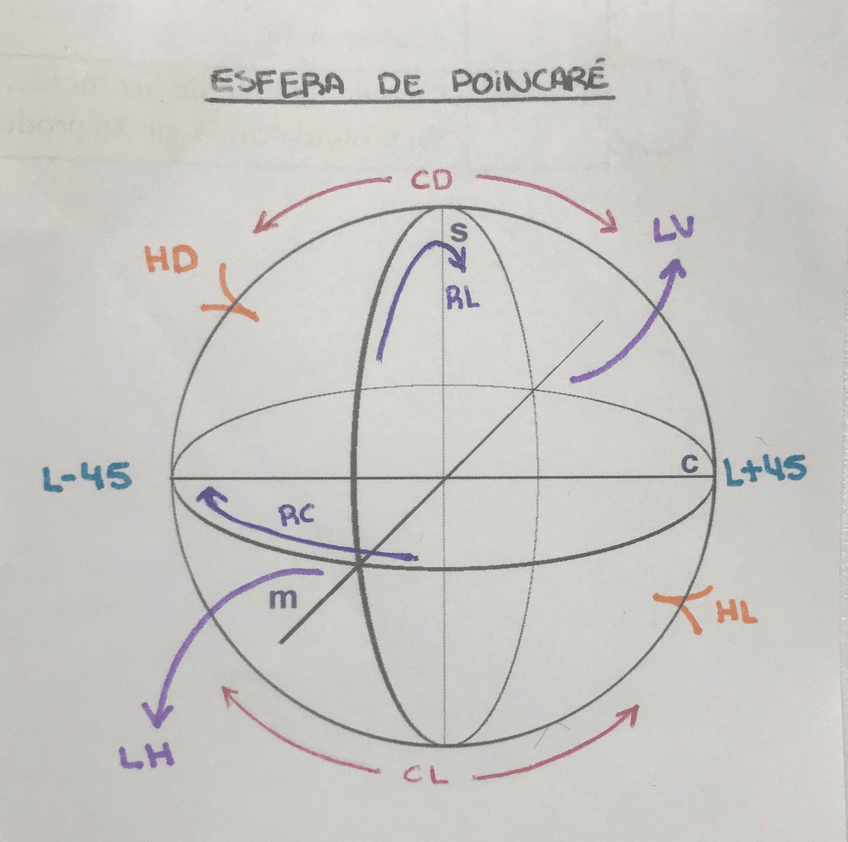 ESFERA DE POINCARÉ
CD
LV
S
HD
RL
C
L-45
L+45
RC
m
HL
LH
CL